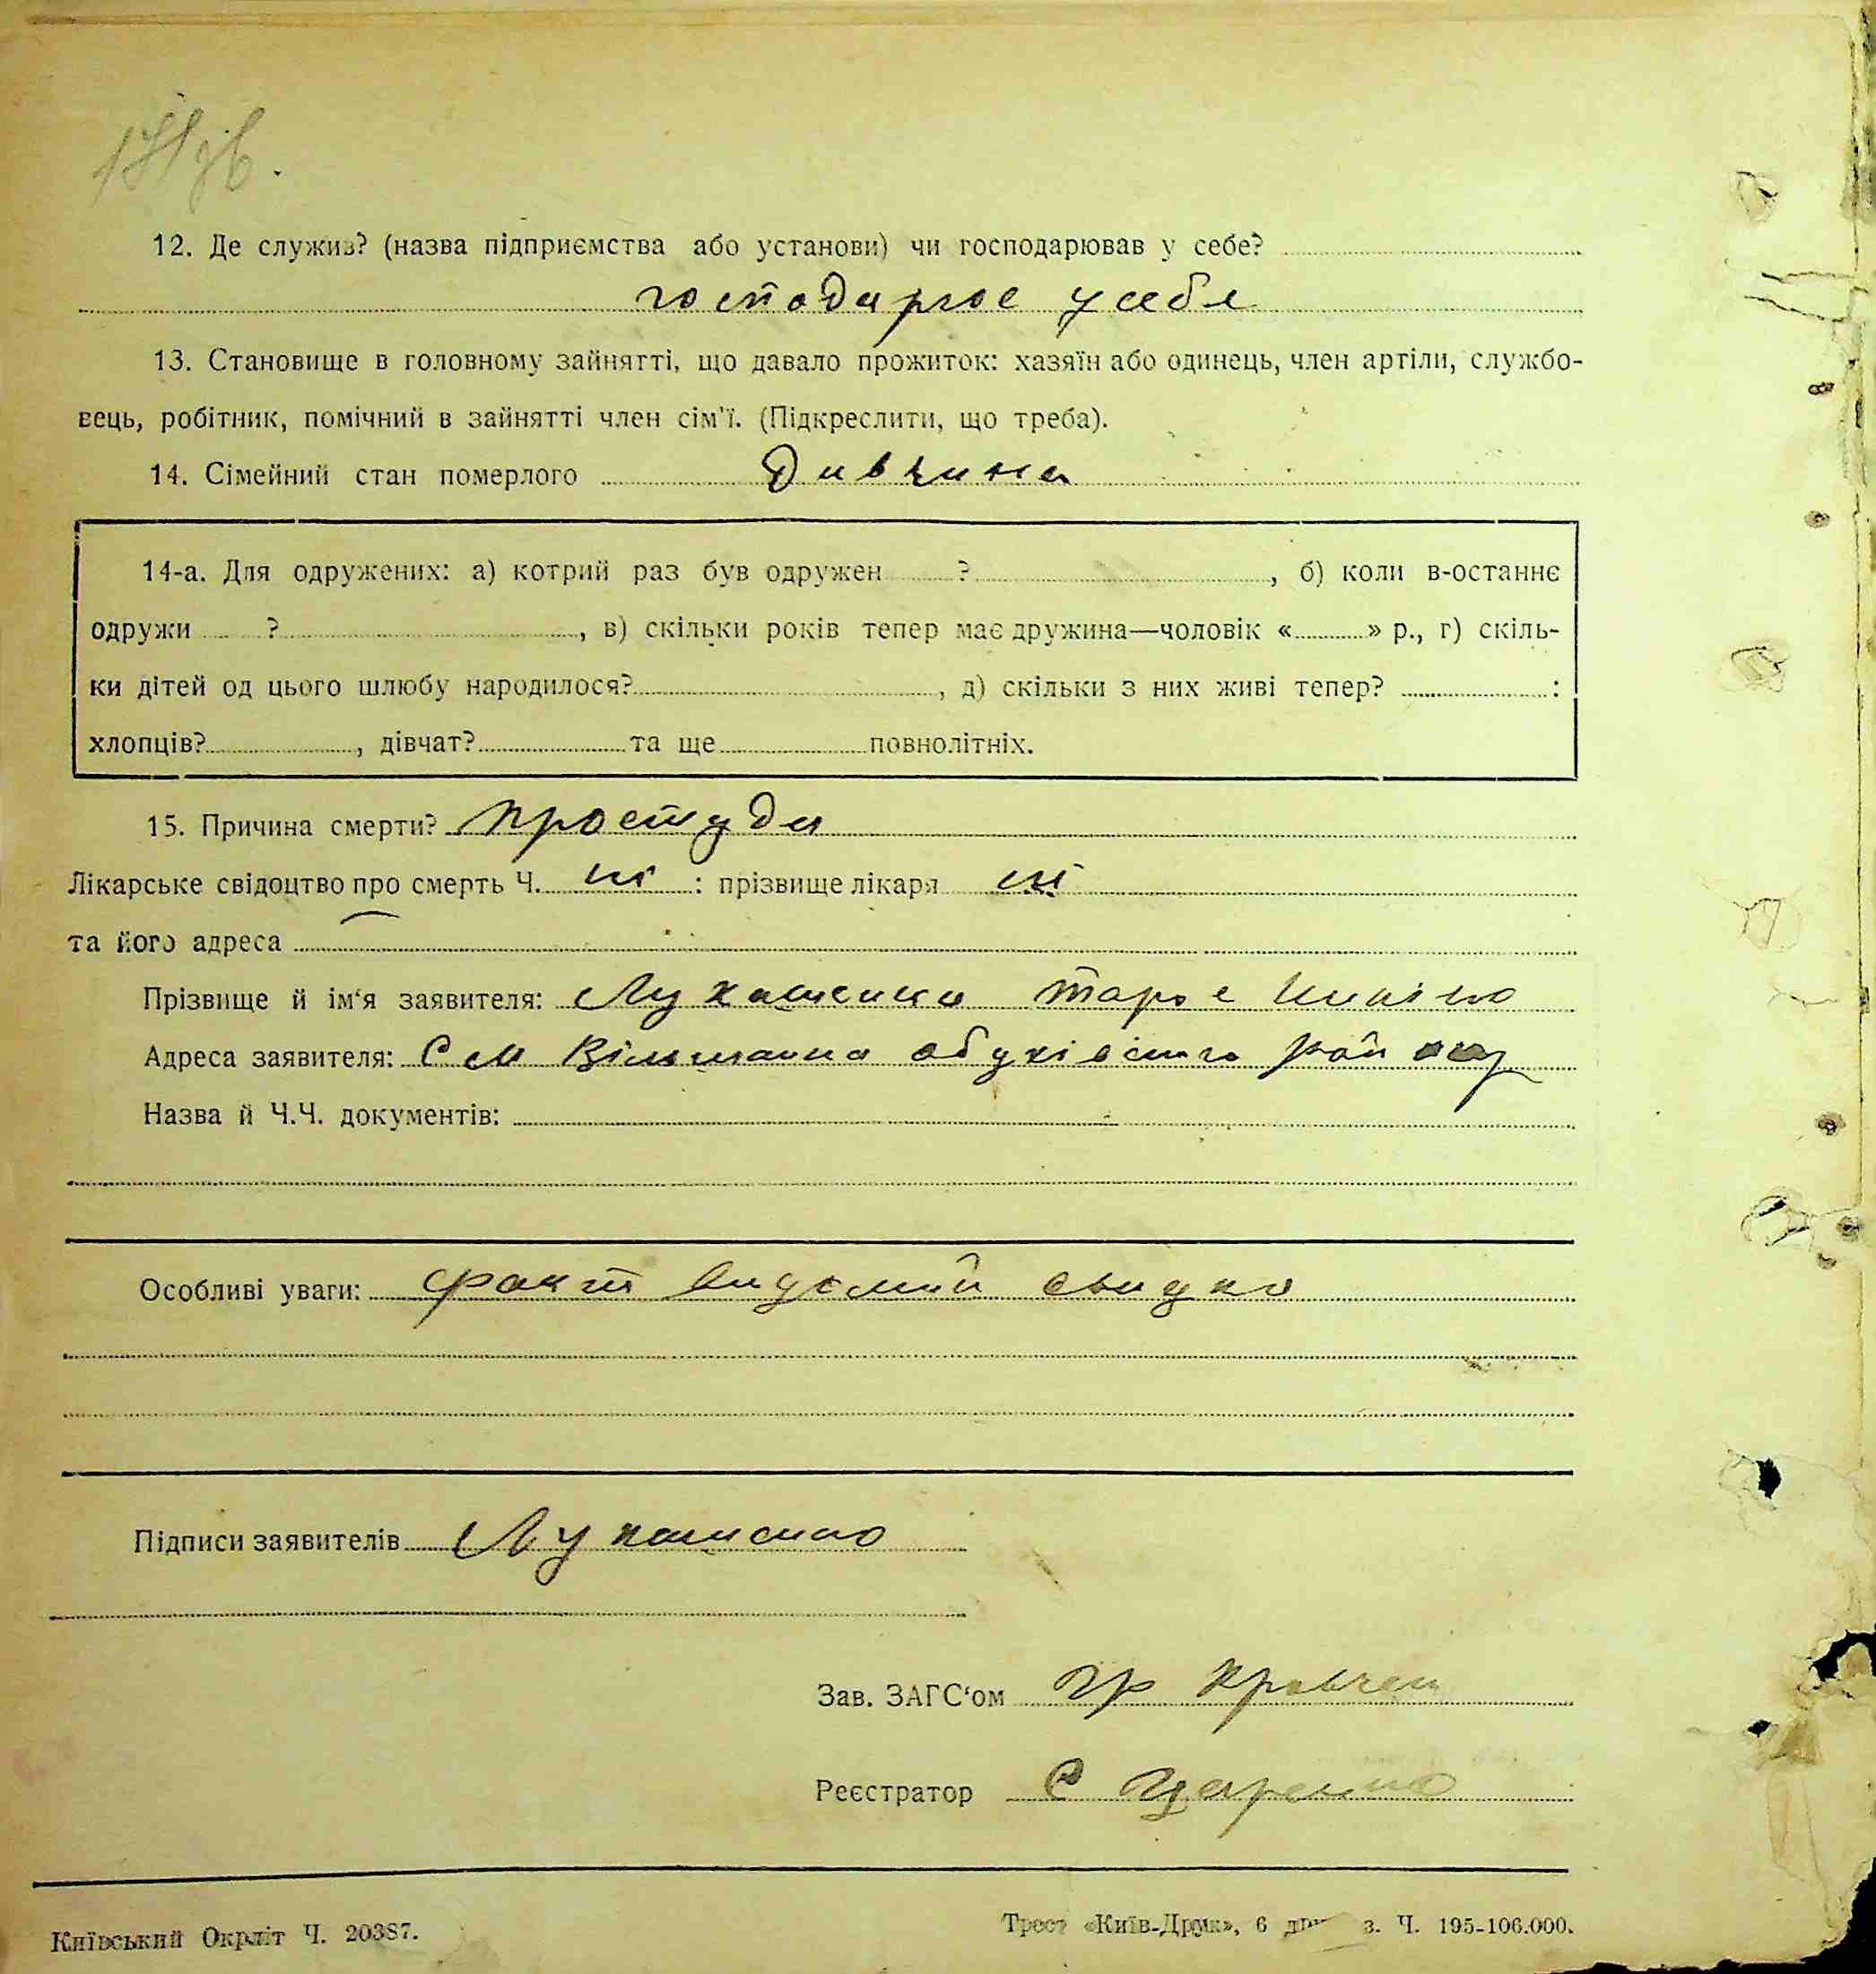 171 зв.
12. Де служив? (назва підприємства або установи) чи господарював у себе?
господарює у себе
13. Становище в головному зайнятті, що давало прожиток: хазяїн або одинець, член артіли, службо-
вець, робітник, помічний в зайнятті член сім'ї. (Підкреслити, що треба).
14. Сімейний стан померлого Дивчина
14-а. Для одружених: а) котрий раз був одружен ?, б) коли в-останнє
одружи ?, в) скільки років тепер має дружина—чоловік « » р., г) скіль-
ки дітей од цього шлюбу народилося?, д) скільки з них живі тепер? :
хлопців?, дівчат? та ще повнолітніх.
15. Причина смерти? простуда
Лікарське свідоцтво про смерть Ч. ні : прізвище лікаря ні
та його адреса
Прізвище й ім'я заявителя: Лукашенко
Адреса заявителя: С М Вільшанка обухівского району
Назва й Ч.Ч. документів:
Особливі уваги: факт видомий
Підписи заявителів Лукашенко
Зав. ЗАГС'ом Гр Кравчен
Реєстратор С Царенко
Київський Окрліт Ч. 20387.
Трест «Київ-Друк», 6 др з. Ч. 195-106.000.